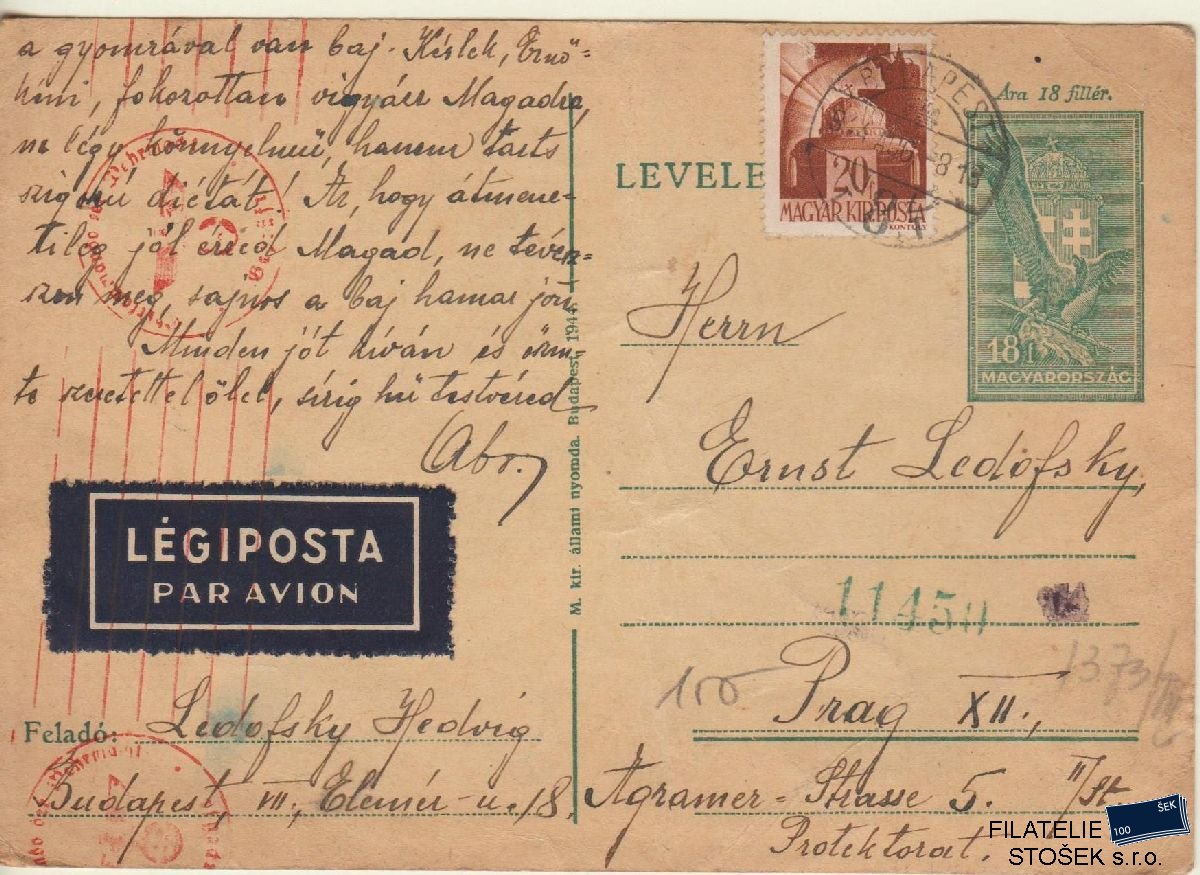 a gyomrával van baj. Kérlek, Ernő-
kém, fokozottan vigyázz Magadra,
ne légy könnyelmű, hanem tarts
szigorú diétát! Az, hogy átmene-
tileg jól érzed Magad, ne tévesz-
szen meg, sajnos a baj hamar jön.
Minden jót kíván és őszin-
te szeretettel ölel, sírig hű testvéred
LÉGIPOSTA
PAR AVION
Feladó: Ledofsky Hedvig
Budapest VII., Elemér-u. 18.
M. kir. állami nyomda. Budapest, 194
LEVELE
20
MAGYAR KIR. POSTA
KONTULY
BUDAPEST
Ára 18 fillér.
18 f
MAGYARORSZÁG
Herrn
Ernst Ledofsky,
11450
100
1373/
Prag XII.,
Agramer-Strasse 5. II/St
Protektorat.
FILATELIE
STOŠEK s.r.o.
100
ŠEK